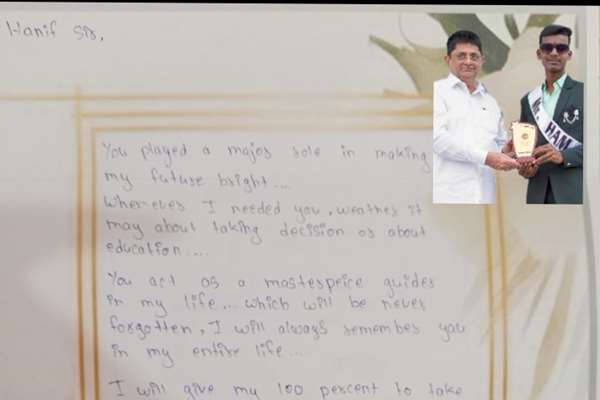 Hanif Sir,
You played a major role in making
my future bright....
Wherever I needed you, weather it
may about taking decision or about
education....
You act as a masterpeice guider
in my life... which will be never
forgotten, I will always remember you
in my entire life...
I will give my 100 percent to take
MR. HAM